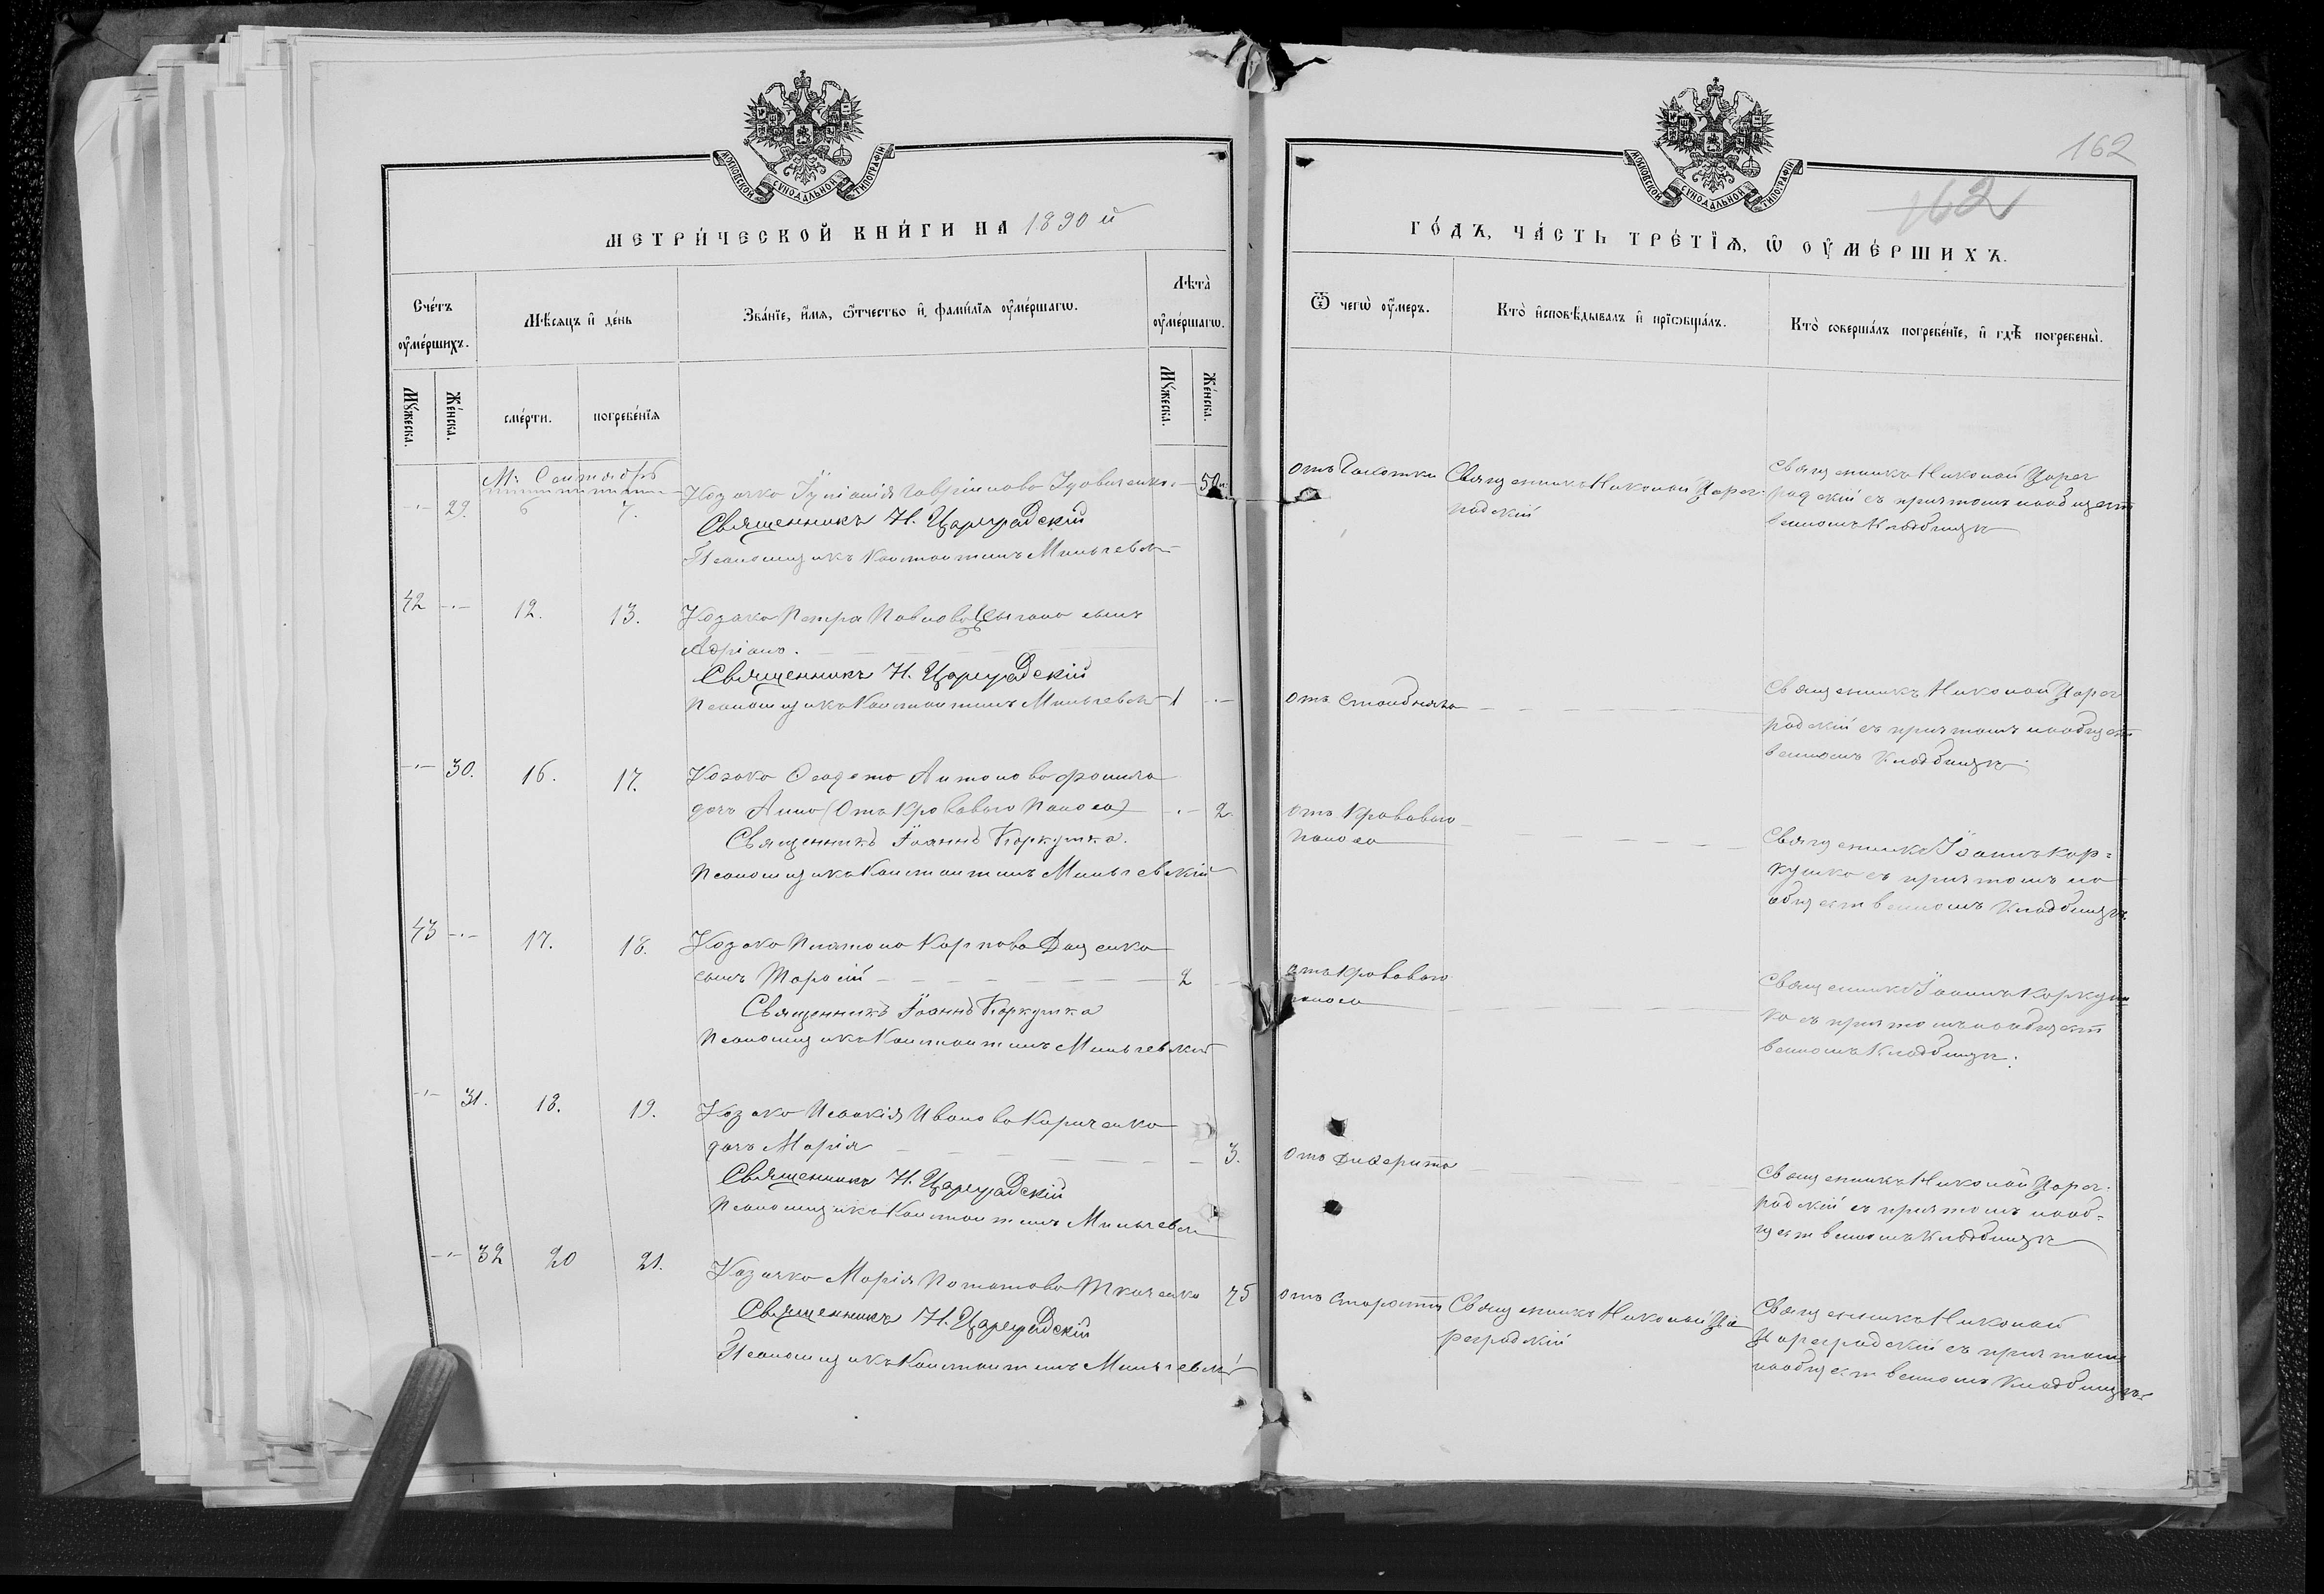 МОСКОВСКОЙ СѴНОДАЛЬНОЙ ТИПОГРАФІИ
МЕТРИ́ЧЕСКОЙ КНИ́ГИ НА 1890 й
Сче́тъ ᲂу҆ме́ршихъ.
Мѣ́сяцъ и҆ де́нь
Зва́нїе, и҆́мя, ѻ҆́тчество и҆ фами́лїя ᲂу҆ме́ршагѡ.
Лѣта̀ ᲂу҆ме́ршагѡ.
Мꙋ́жеска.
Же́нска.
сме́рти.
погребе́нїя
Мꙋ́жеска.
Же́нска.
М: Сентябрь
29. 6 7. Козачка Іуліанія Гавріилова 50
Священникъ Н. Цареградскій
Псаломщикъ Константинъ Мильчевскі
42 12. 13. Козака Петра Павлова Цыгана сынъ
Адріанъ.
Священникъ Н. Цареградскій
Псаломщикъ Константинъ Мильчевскі 1
30. 16. 17. Козака Антонова
дочь Анна (Отъ Кроваваго поноса) 2.
Священникъ Іоаннъ Коркушка.
Псаломщикъ Константинъ Мильчевскій
43 17. 18. Козака Платона Карпова Даценка
сынъ Тарасій 2
Священникъ Іоаннъ Коркушка
Псаломщикъ Константинъ Мильчевскій
31. 18. 19. Козака Исаакія Иванова Кириченка
дочь Марія 3.
Священникъ Н. Цареградскій
Псаломщикъ Константинъ Мильчевскі
32 20 21. Козачка Марія Потапова Ткаченко 75
Священникъ Н. Цареградскій
Псаломщикъ Константинъ Мильчевскі
162
МОСКОВСКОЙ СѴНОДАЛЬНОЙ ТИПОГРАФІИ
162
ГО́ДЪ, ЧА́СТЬ ТРЕ́ТЇѦ, Ѡ ОУ҆МЕ́РШИХЪ.
Ѿ чегѡ̀ ᲂу҆́меръ.
Кто̀ и҆сповѣ́дывалъ и҆ прїѡбща́лъ.
Кто̀ соверша́лъ погребе́нїе, и҆ гдѣ̀ погребены̀.
отъ Чахотки
Священникъ Николай Царег-
радскій
Священникъ Николай Царег
радскій съ причтомъ наобщест
венномъ Кладбищѣ
отъ
Священникъ Николай Царег
радскій съ причтомъ наобщест
венномъ Кладбищѣ
отъ Кроваваго
поноса
Священникъ Іоаннъ Кор=
кушка съ причтомъ на
общественномъ Кладбищѣ
отъ Кроваваго
поноса
Священникъ Іоаннъ Коркуш
ка съ причтомъ наобщест
венномъ Кладбищѣ.
отъ Дифтерита
Священникъ Николай Царег-
радскій съ причтомъ нaоб=
щественномъ Кладбищѣ
отъ Старости
Священникъ Николай Ца
реградскій
Священникъ Николай
Цареградскій съ причтомъ
наобщественномъ Кладбищѣ